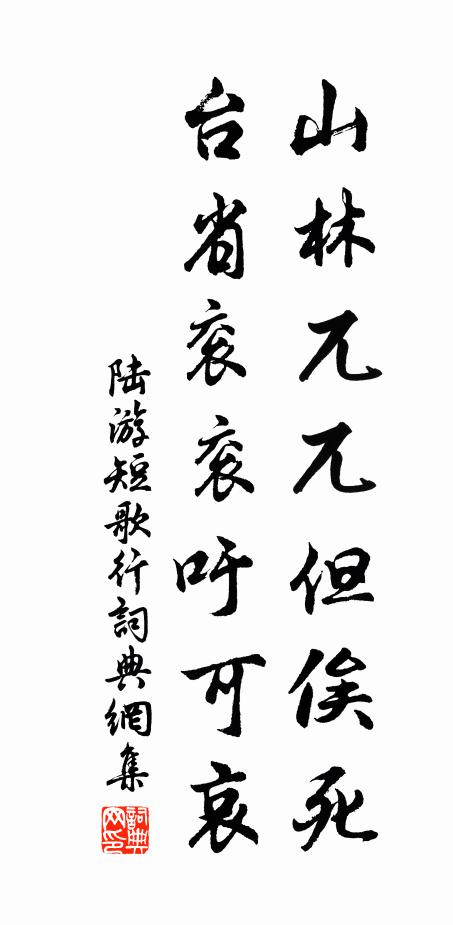 山林兀兀但俟死
台省衮衮吁可哀
陆游短歌行詞典網集
詞典网印